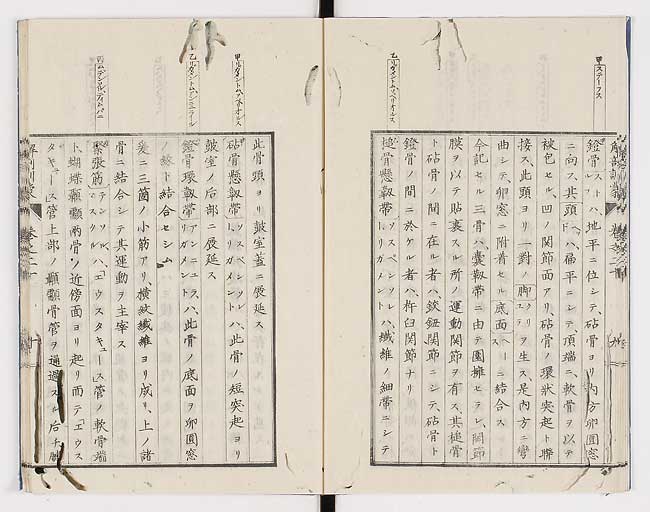 甲ステープス
乙リガメントム、マベリオルス
鐙骨ストハ、地平ニ位シテ、砧骨ヨリ内方卵圓窓
ニ向フ、其頭ハ、扁平ニシテ、頂端ニ、軟骨ヲ以テ
被包セル、凹ノ関節面アリ、砧骨ノ環狀突起ト聯
接ス、此頭ヨリ一對ノ脚ヲ生ス、是内方ニ彎
曲シテ、卵窓ニ附着セル底面ニ結合ス
今記セル三骨ハ囊靱帯ニ由テ圍擁セラレ、関節
膜ヲ以テ貼裹スル所ノ運動関節ヲ有ス、其槌骨
ト砧骨ノ間ニ在ル者ハ、鉸鈕関節ニシテ、砧骨ト
鐙骨ノ間ニ於ケル者ハ、杵臼関節ナリ
槌骨懸靱帯ソスペンソレト、リガメントハ、纖維ノ細帯ニシテ
此骨頭ヨリ鼓室蓋ニ展延ス
砧骨懸靱帯ソスペンソレト、リガメントハ、此骨ノ短突起ヨリ
鼓室ノ后部ニ展延ス
鐙骨環靱帯アンニュラル、リガメントハ、此骨ノ底面ヲ卵圓窓
ノ緣ト結合セシム
爰ニ三箇ノ小筋アリ、橫紋纖維ヨリ成リ、上ノ諸
骨ニ結合シテ其運動ヲ主宰ス
緊張筋テンソルハ、「エウスタキュース」管ノ軟骨端
ト、蝴蝶顳顬兩骨ノ近傍面ヨリ起リ而テ「エウス
タキュース」管上部ノ顳顬骨管ヲ通過スル后チ
解剖訓蒙 卷之二十